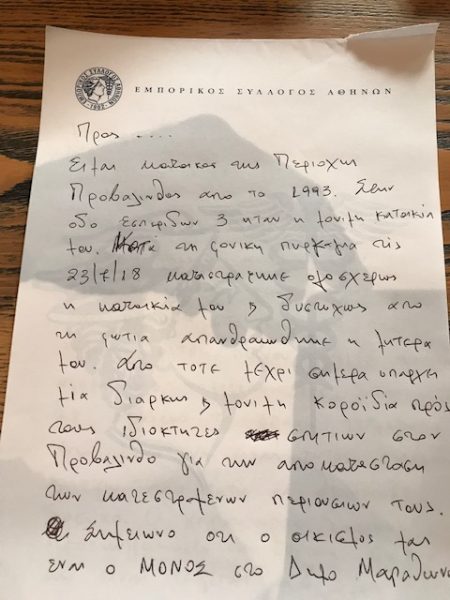 ΕΜΠΟΡΙΚΟΣ ΣΥΛΛΟΓΟΣ ΑΘΗΝΩΝ
ΕΜΠΟΡΙΚΟΣ ΣΥΛΛΟΓΟΣ ΑΘΗΝΩΝ
1902
Προς ....
Ειμαι κατοικος της Περιοχης
Προβαλινθος απο το 1993. Στην
οδο Εσπεριδων 3 ηταν η μονιμη κατοικια
μου. Κατα τη φονικη πυρκαγια στις
23/7/18 καταστραφηκε ολοσχερως
η κατοικια μου & δυστυχως απο
τη φωτια απανθρακωθηκε η μητερα
μου. Απο τοτε μεχρι σημερα υπαρχει
μια διαρκης & μονιμη κοροϊδια προς
τους ιδιοκτητες σπιτιων στον
Προβαλινθο για την αποκατασταση
των κατεστραμενων περιουσιων τους.
Σημειωνο οτι ο οικισμος μας
ειναι ο ΜΟΝΟΣ στο Δημο Μαραθωνα